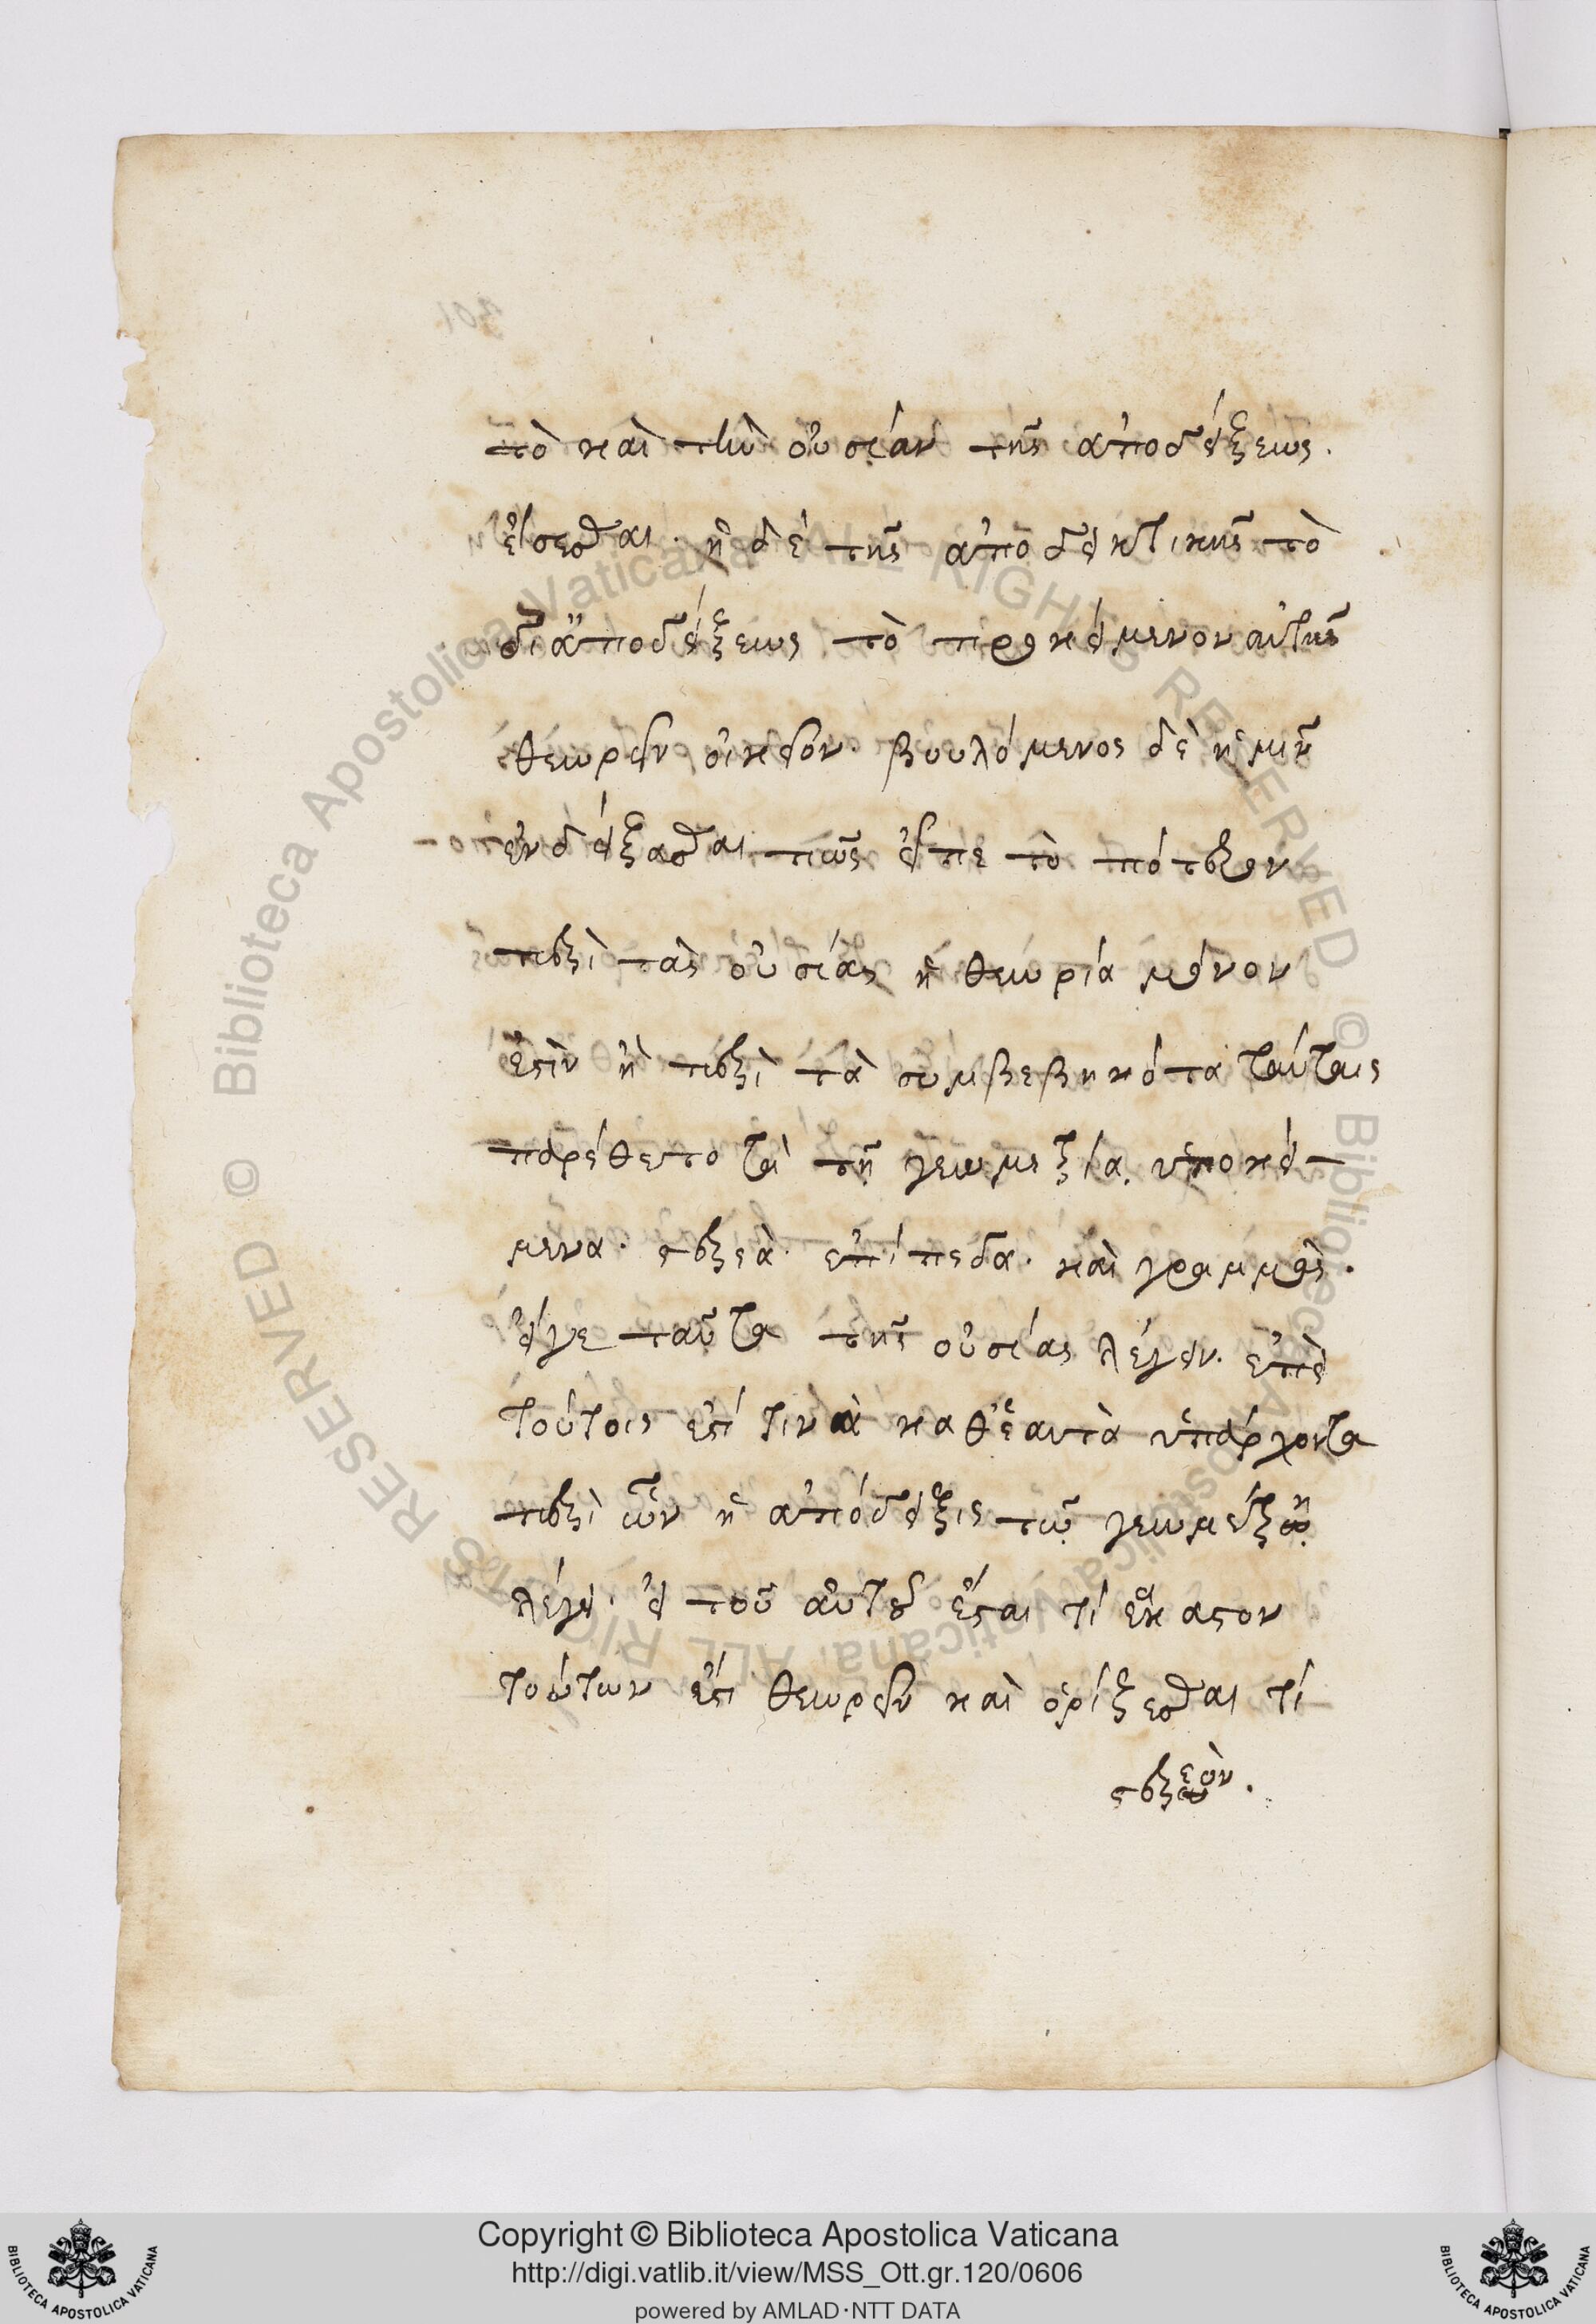 τὸ καὶ τὴν οὐσίαν τῆς ἀποδείξεως.
εἴσεσθαι· ἡ δὲ τῆς ἀποδεικτικῆς τὸ
δι' ἀποδείξεως τὸ προκείμενον αὐτῆς
θεωρεῖν οἰκεῖον· βουλόμενος δὲ ἡμῖν
ἐνδείξασθαι πῶς εἶπε τὸ πότερον
περὶ τὰς οὐσίας ἡ θεωρία μόνον
ἐστὶν ἢ περὶ τὰ συμβεβηκότα ταύταις
παρέθετο τὰ τῇ γεωμετρίᾳ ὑποκεί-
μενα· στερεὰ· ἐπίπεδα· καὶ γραμμὰς.
εἴγε ταῦτα τῆς οὐσίας λέγειν· ἐπὶ
τούτοις ἐστί τινὰ καθ' ἑαυτὰ ὑπάρχοντα
περὶ ὧν ἡ ἀπόδειξις τῷ γεωμέτρῃ
λέγει· εἰ τοῦ αὐτοῦ ἔσται τί ἕκαστον
τούτων ἐστὶ θεωρεῖν καὶ ὁρίζεσθαι τί
στερεὸν.
Copyright © Biblioteca Apostolica Vaticana
http://digi.vatlib.it/view/MSS_Ott.gr.120/0606
powered by AMLAD·NTT DATA